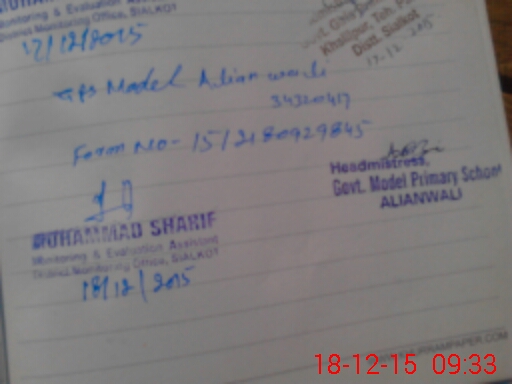 Monitoring & Evaluation Assistant
District Monitoring Office, SIALKOT
17/12/2015
Govt. Girls
Khalilpur, Teh.
Distt. Sialkot
17-12-2015
GPS Model Alianwali
34320417
Form No- 15/2180929845
Headmistress,
Govt. Model Primary School
ALIANWALI
MUHAMMAD SHARIF
Monitoring & Evaluation Assistant
District Monitoring Office, SIALKOT
18/12/2015
18-12-15 09:33